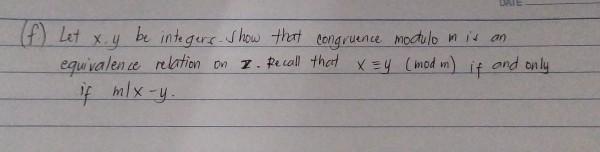 DATE
(f) Let x,y be integers. Show that congruence modulo m is an
equivalence relation on Z. Recall that x ≡ y (mod m) if and only
if m|x-y.